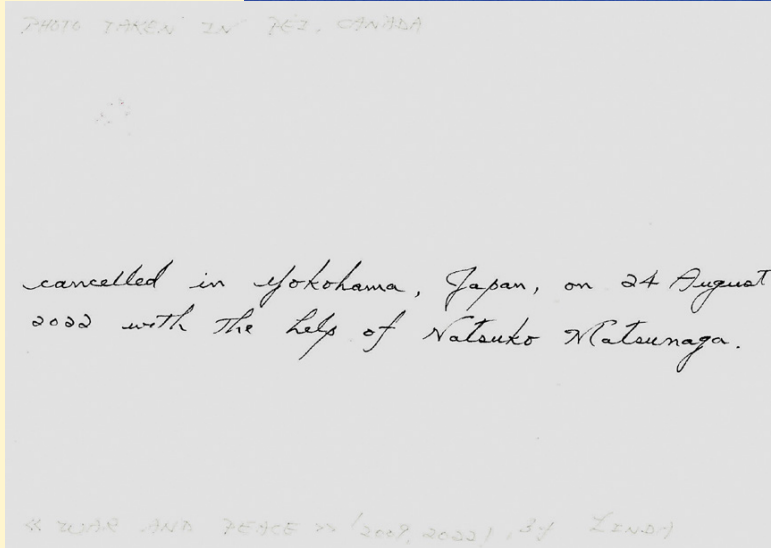 PHOTO TAKEN IN PEI, CANADA
cancelled in Yokohama, Japan, on 24 August
2022 with the help of Natsuko Matsunaga.
« WAR AND PEACE » (2009, 2022), By LINDA